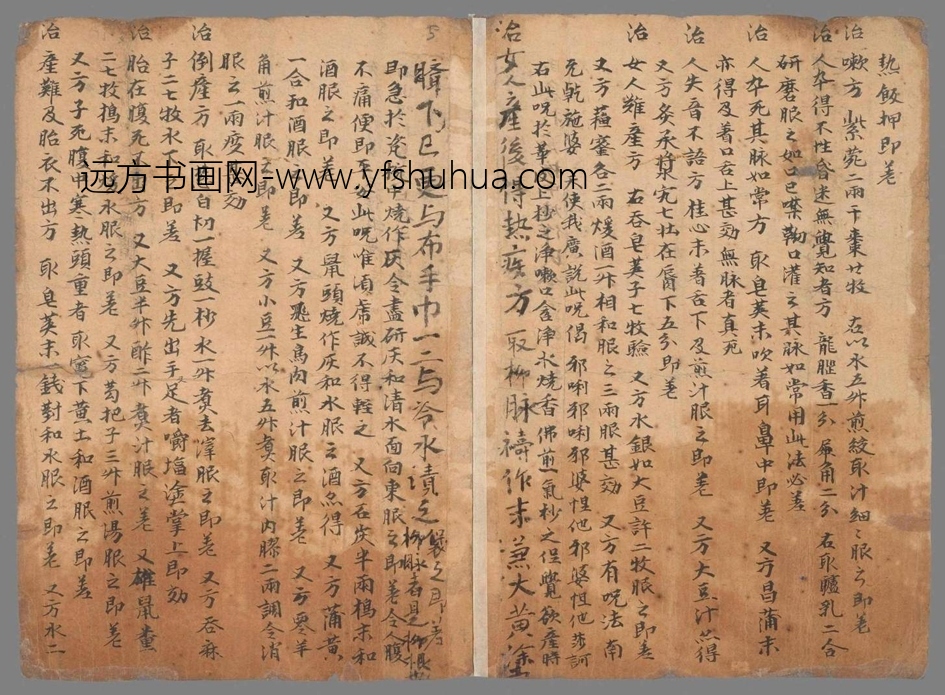 熱飯押即差
治嗽方 紫菀二兩干棗廿枚 右以水五升煎絞取汁細細眼之即差
治人卒得不性昏迷無覺知者方 龍腦香一分 犀角二分 右取驢乳二合
研磨眼之如口已噤𠡠口灌之其脉如常用此法必差
治人卒死其脉如常方 取皂莢末吹著耳鼻中即差 又方昌蒲末
亦得及著口舌上甚効無脉者真死
治人失音不語方 桂心末著舌下及煎汁眼之即差 又方大豆汁亦得
又方灸承漿穴七壯在脣下五分即差
治女人難產方 右吞皂莢子七枚驗 又方水銀如大豆許二枚眼之即差
又方蘿蔔各二兩煖酒一升相和眼之三兩眼甚効 又方有呪法 南
无乾施婆 使我廣說此呪偈 邪唎邪唎邪婆怛他邪婆怛他莎訶
右此呪於革上抄之淨嗽口含淨水燒香佛前一氣抄之但覺欲產時
治女人產後得熱疾方 取柳脉禱作末兼大黃塗
臍下已 更与布手巾一二与冷水漬之
櫢之即差
柳脉者是柳根也
即急於瓷 中燒作灰令盡研灰和清水面向東眼之即差令人腹
不痛便即平 此呪唯須虔誠不得輕之 又方石炭半兩搗末和
酒眼之即差 又方鼠頭燒作灰和水眼之酒亦得 又方蒲黃
一合和酒眼之即差 又方飛生鳥肉煎汁眼之即差 又方零羊
角煎汁眼之即差 又方小豆一升以水五升煑取汁內膠二兩調令消
眼之一兩度 効
治倒產方 取 白切一握豉一抄水一升煑去滓眼之即差 又方吞麻
子二七枚水下即差 又方先出手足者嚼塩塗掌上即効
治胎在腹死 方 又大豆半升酢二升煑汁眼之差 又雄鼠糞
二七枚搗末和 水眼之即差 又方葛把子三升煎湯眼之即差
又方子死腹中寒熱頭重者取竈下黃土和酒眼之即差
治產難及胎衣不出方 取皂莢末 錢對和水眼之即差 又方水二
远方书画网-www.yfshuhua.com